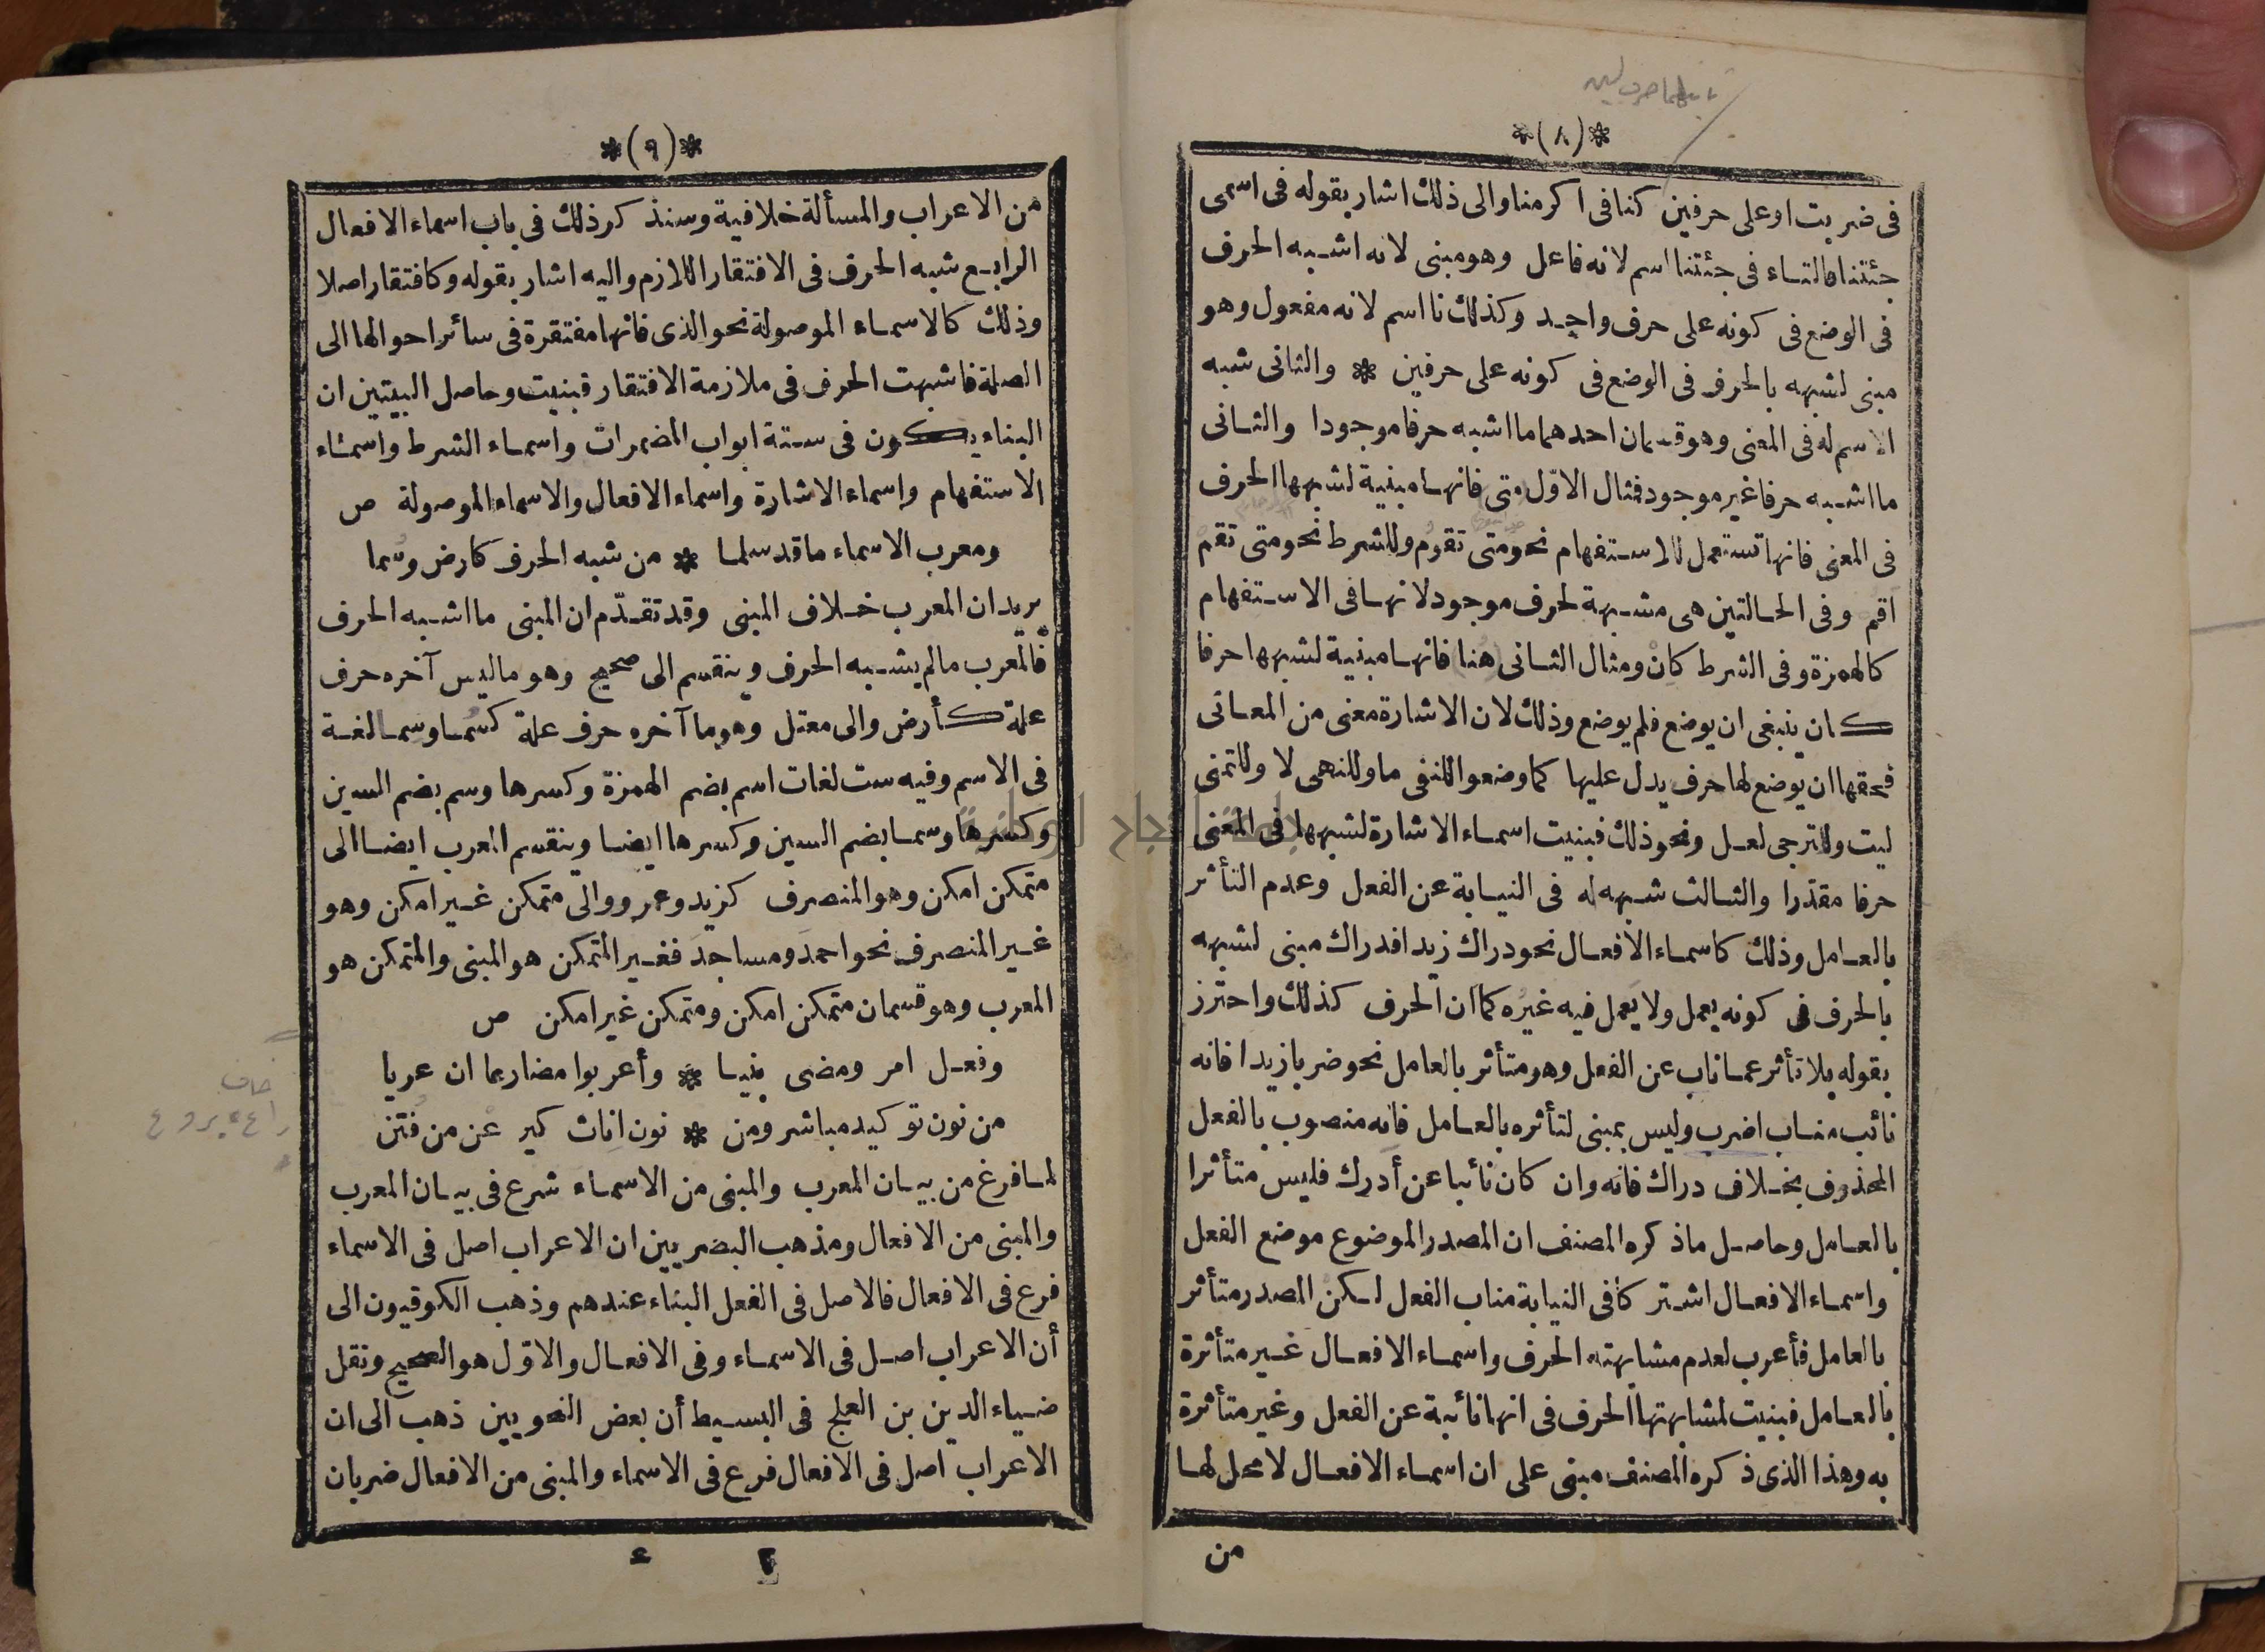 *(٨)*
فى ضربت اوعلى حرفين كنافى اكرمنا والى ذلك اشار بقوله فى اسمى
جئتنا فالتاء فى جئتنا اسم لانه فاعل وهو مبنى لانه اشبه الحرف
فى الوضع فى كونه على حرف واحد وكذلك نا اسم لانه مفعول وهو
مبنى لشبهه بالحرف فى الوضع فى كونه على حرفين * والثانى شبه
الاسم له فى المعنى وهو قسمان احدهما ما اشبه حرفا موجودا والثانى
ما اشبه حرفا غير موجود فثال الاوّل متى فانها مبنية لشبهها الحرف
فى المعنى فانها تستعمل للاستفهام نحو متى تقوم وللشرط نحو متى تقم
اقم وفى الحالتين هى مشبهة لحرف موجود لانها فى الاستفهام
كالهمزة وفى الشرط كان ومثال الثانى (هنا) فانها مبنية لشبهها حرفا
كان ينبغى ان يوضع فلم يوضع وذلك لان الاشارة معنى من المعانى
فحقها ان يوضع لها حرف يدل عليها كما وضعوا للنفى ما وللنهى لا وللتمنى
ليت وللترجى لعل ونحو ذلك فبنيت اسماء الاشارة لشبهها فى المعنى
حرفا مقدّرا والثالث شبهه له فى النيابة عن الفعل وعدم التأثر
بالعامل وذلك كاسماء الافعال نحو دراك زيدا فدراك مبنى لشبهه
بالحرف فى كونه يعمل ولا يعمل فيه غيره كما ان الحرف كذلك واحترز
بقوله بلا تأثر عما ناب عن الفعل وهو متأثر بالعامل نحو ضربا زيدا فانه
نائب مناب اضرب وليس بمبنى لتأثره بالعامل فانه منصوب بالفعل
المحذوف بخلاف دراك فانه وان كان نائبا عن أدرك فليس متأثرا
بالعامل وحاصل ما ذكره المصنف ان المصدر الموضوع موضع الفعل
واسماء الافعال اشتركا فى النيابة مناب الفعل لكن المصدر متأثر
بالعامل فأعرب لعدم مشابهته الحرف واسماء الافعال غير متأثرة
بالعامل فبنيت لمشابهتها الحرف فى انها نائبة عن الفعل وغير متأثرة
به وهذا الذى ذكره المصنف مبنى على ان اسماء الافعال لا محل لها
من
*(٩)*
من الاعراب والمسألة خلافية وسنذكر ذلك فى باب اسماء الافعال
الرابع شبه الحرف فى الافتقار اللازم واليه اشار بقوله وكافتقار اصلا
وذلك كالاسماء الموصولة نحو الذى فانها مفتقرة فى سائر احوالها الى
الصلة فاشبهت الحرف فى ملازمة الافتقار فبنيت وحاصل البيتين ان
البناء يكون فى ستة ابواب المضمرات واسماء الشرط واسماء
الاستفهام واسماء الاشارة واسماء الافعال والاسماء الموصولة ص
ومعرب الاسماء ما قد سلما * من شبه الحرف كارض وسما
يريد ان المعرب خلاف المبنى وقد تقدّم ان المبنى ما اشبه الحرف
فالمعرب ما لم يشبه الحرف وينقسم الى صحيح وهو ما ليس آخره حرف
علة كأرض والى معتل وهو ما آخره حرف علة كسما وسما لغة
فى الاسم وفيه ست لغات اسم بضم الهمزة وكسرها وسم بضم السين
وكسرها وسما بضم السين وكسرها ايضا وينقسم المعرب ايضا الى
متمكن امكن وهو المنصرف كزيد وعمرو والى متمكن غير امكن وهو
غير المنصرف نحو احمد ومساجد فغير المتمكن هو المبنى والمتمكن هو
المعرب وهو قسمان متمكن امكن ومتمكن غير امكن ص
وفعل امر ومضى بنيا * وأعربوا مضارعا ان عريا
من نون توكيد مباشر ومن * نون اناث كيرعن من فتن
لما فرغ من بيان المعرب والمبنى من الاسماء شرع فى بيان المعرب
والمبنى من الافعال ومذهب البصريين ان الاعراب اصل فى الاسماء
فرع فى الافعال فالاصل فى الفعل البناء عندهم وذهب الكوفيون الى
أن الاعراب اصل فى الاسماء وفى الافعال والاوّل هو الصحيح ونقل
ضياء الدين بن العلج فى البسيط أن بعض النحويين ذهب الى ان
الاعراب اصل فى الافعال فرع فى الاسماء والمبنى من الافعال ضربان